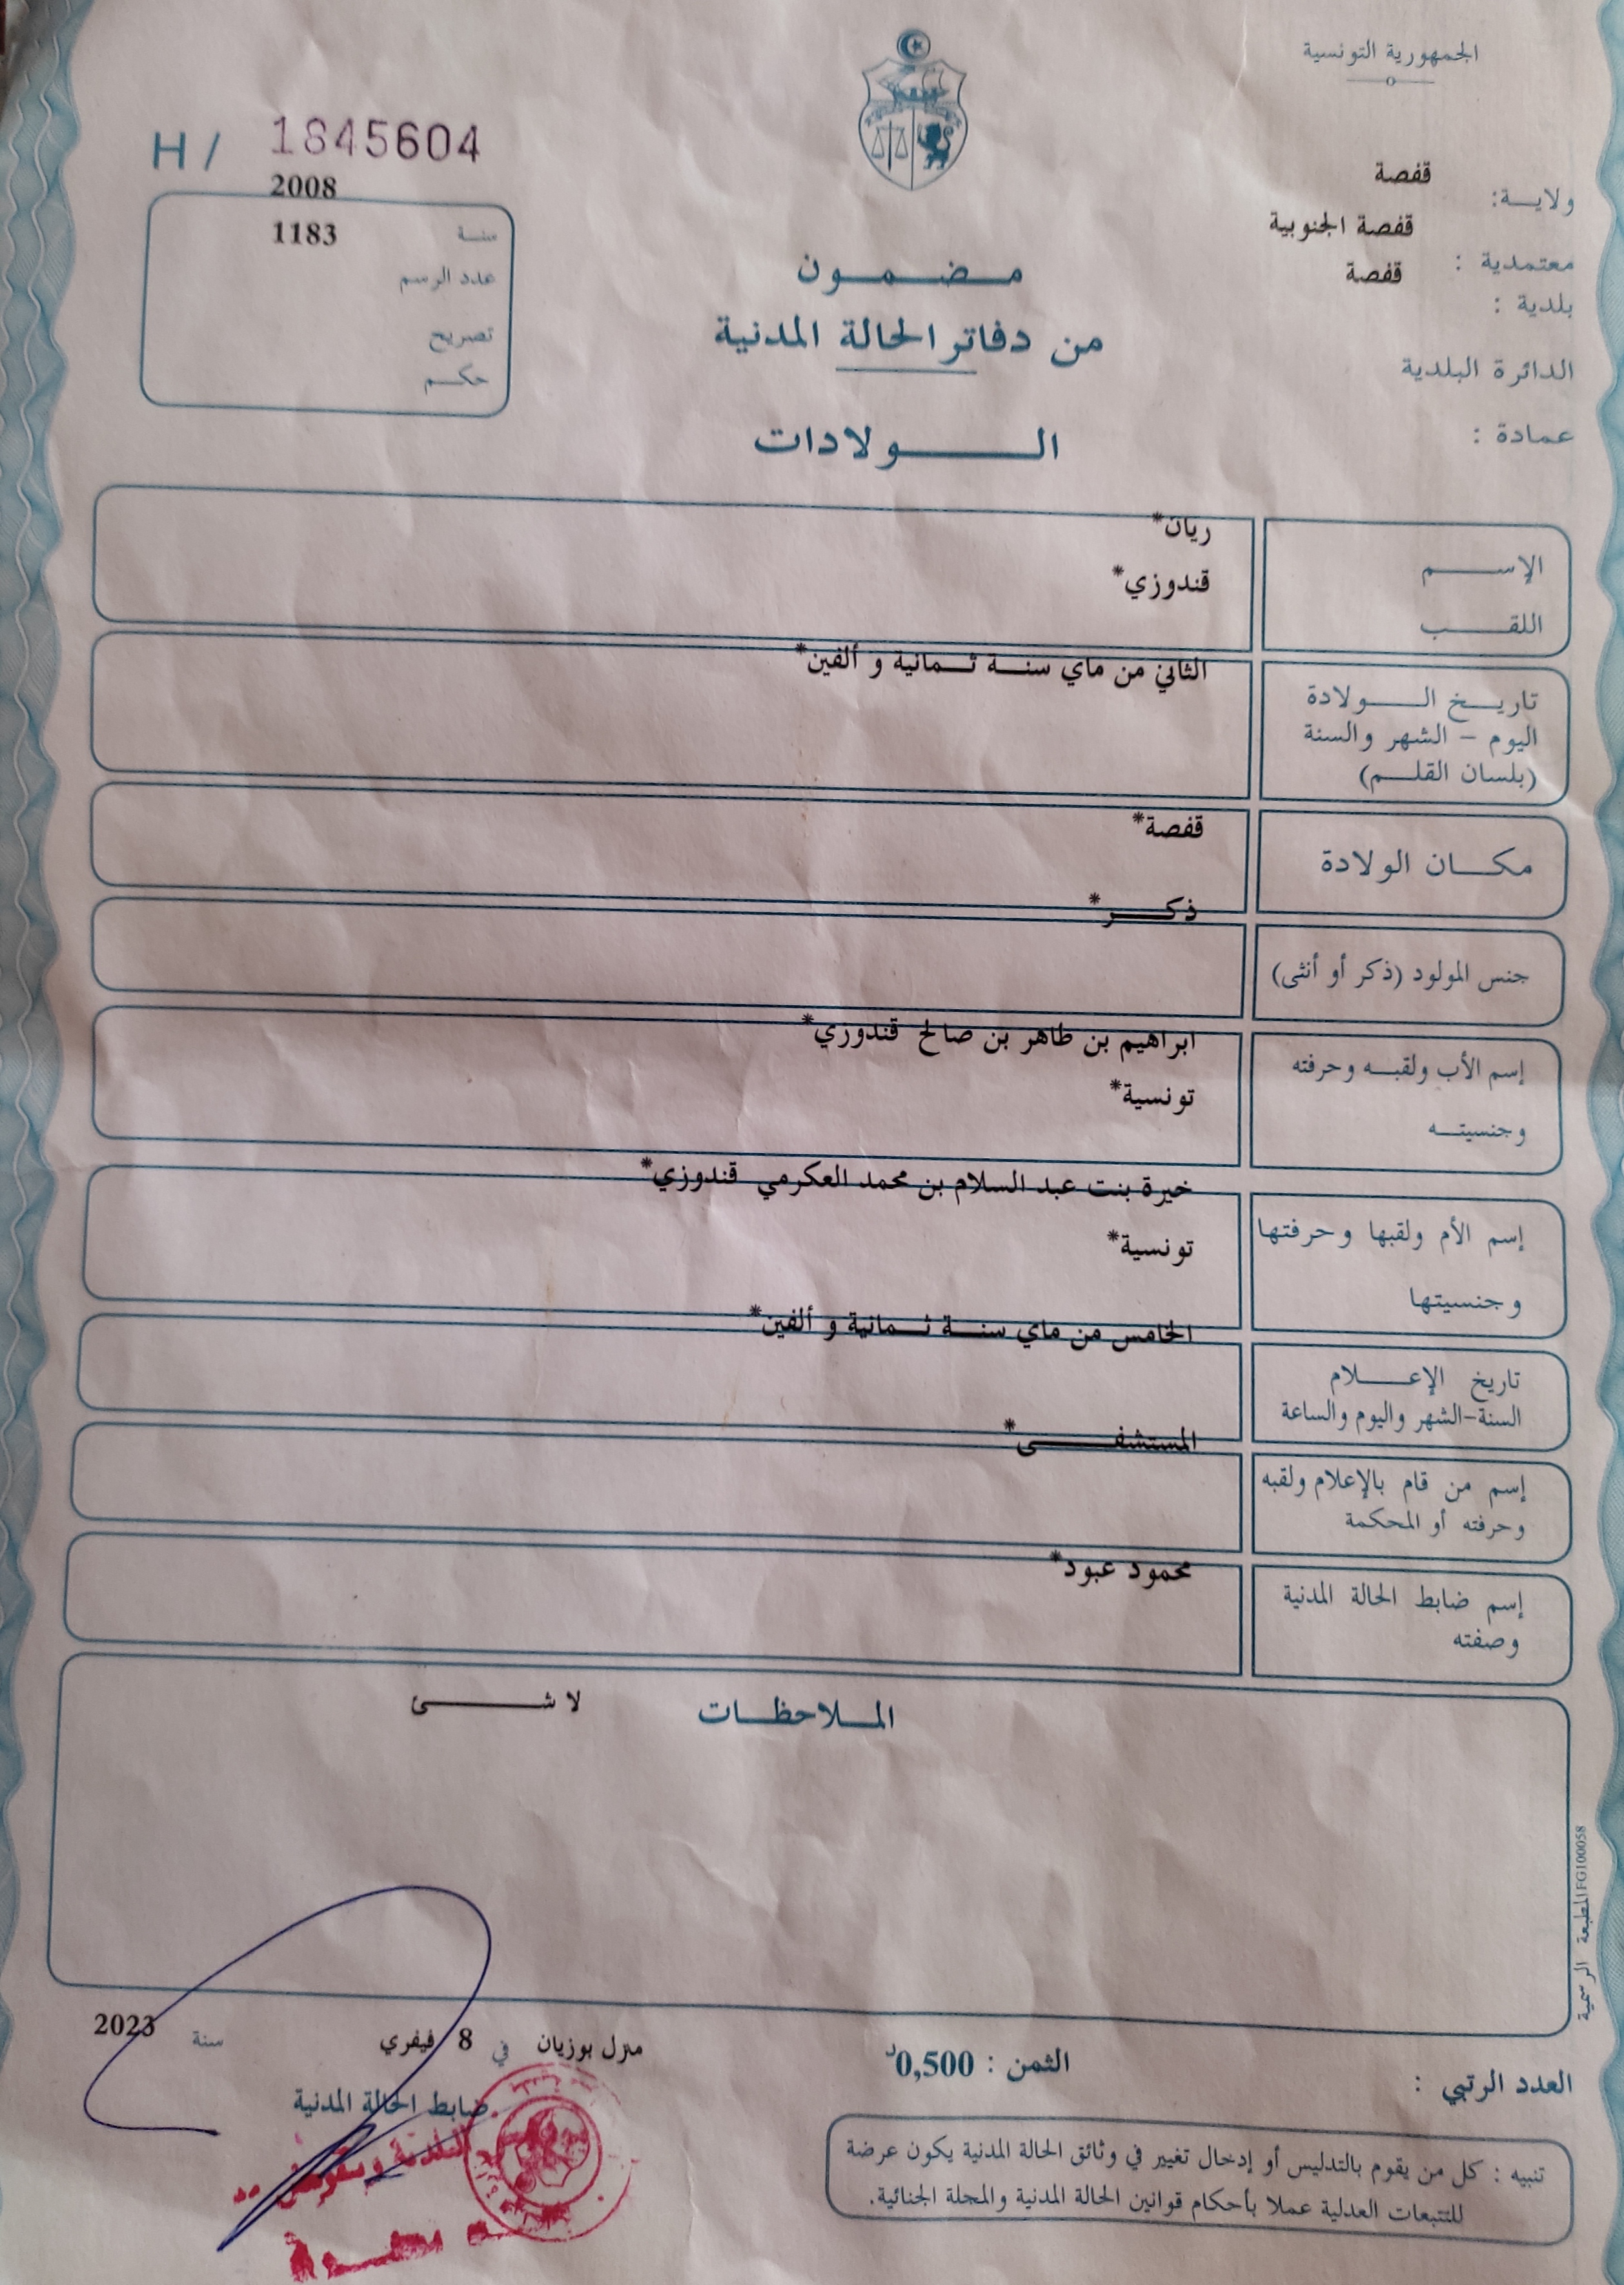 الجمهورية التونسية
ولاية: قفصة
معتمدية : قفصة الجنوبية
بلدية : قفصة
الدائرة البلدية
عمادة :
H / 1845604
2008
سنة 1183
عدد الرسم
تصريح
حكم
مضمون
من دفاتر الحالة المدنية
الولادات
الإسم ريان*
اللقب قندوزي*
تاريخ الولادة
اليوم - الشهر والسنة
(بلسان القلم)
الثاني من ماي سنة ثمانية و ألفين*
مكان الولادة قفصة*
جنس المولود (ذكر أو أنثى) ذكر*
إسم الأب ولقبه وحرفته ابراهيم بن طاهر بن صالح قندوزي*
وجنسيته تونسية*
إسم الأم ولقبها وحرفتها خيرة بنت عبد السلام بن محمد العكرمي قندوزي*
وجنسيتها تونسية*
تاريخ الإعلام
السنة-الشهر واليوم والساعة
الخامس من ماي سنة ثمانية و ألفين*
إسم من قام بالإعلام ولقبه
وحرفته أو المحكمة
المستشفى*
إسم ضابط الحالة المدنية
وصفته
محمود عبود*
الملاحظات لا شئ
المطبعة الرسمية FG100058
العدد الرتبي :
الثمن : 0,500د
منزل بوزيان في 8 فيفري سنة 2023
ضابط الحالة المدنية
تنبيه : كل من يقوم بالتدليس أو إدخال تغيير في وثائق الحالة المدنية يكون عرضة
للتتبعات العدلية عملا بأحكام قوانين الحالة المدنية والمجلة الجنائية.